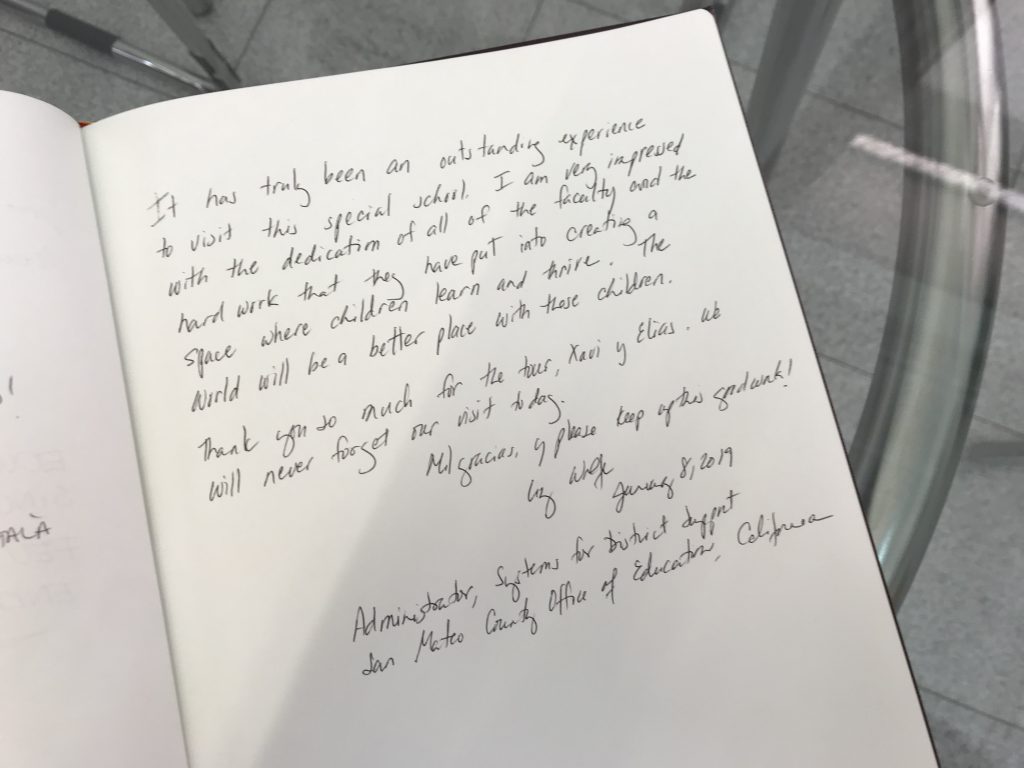 It has truly been an outstanding experience
to visit this special school. I am very impressed
with the dedication of all of the faculty and the
hard work that they have put into creating a
space where children learn and thrive. The
World will be a better place with these children.
Thank you so much for the tour, Xavi y Elias. We
will never forget our visit today.
Mil gracias, y please keep up this good work!
Liz
January 8, 2019
Administrator, Systems for District Support
San Mateo County Office of Education, California